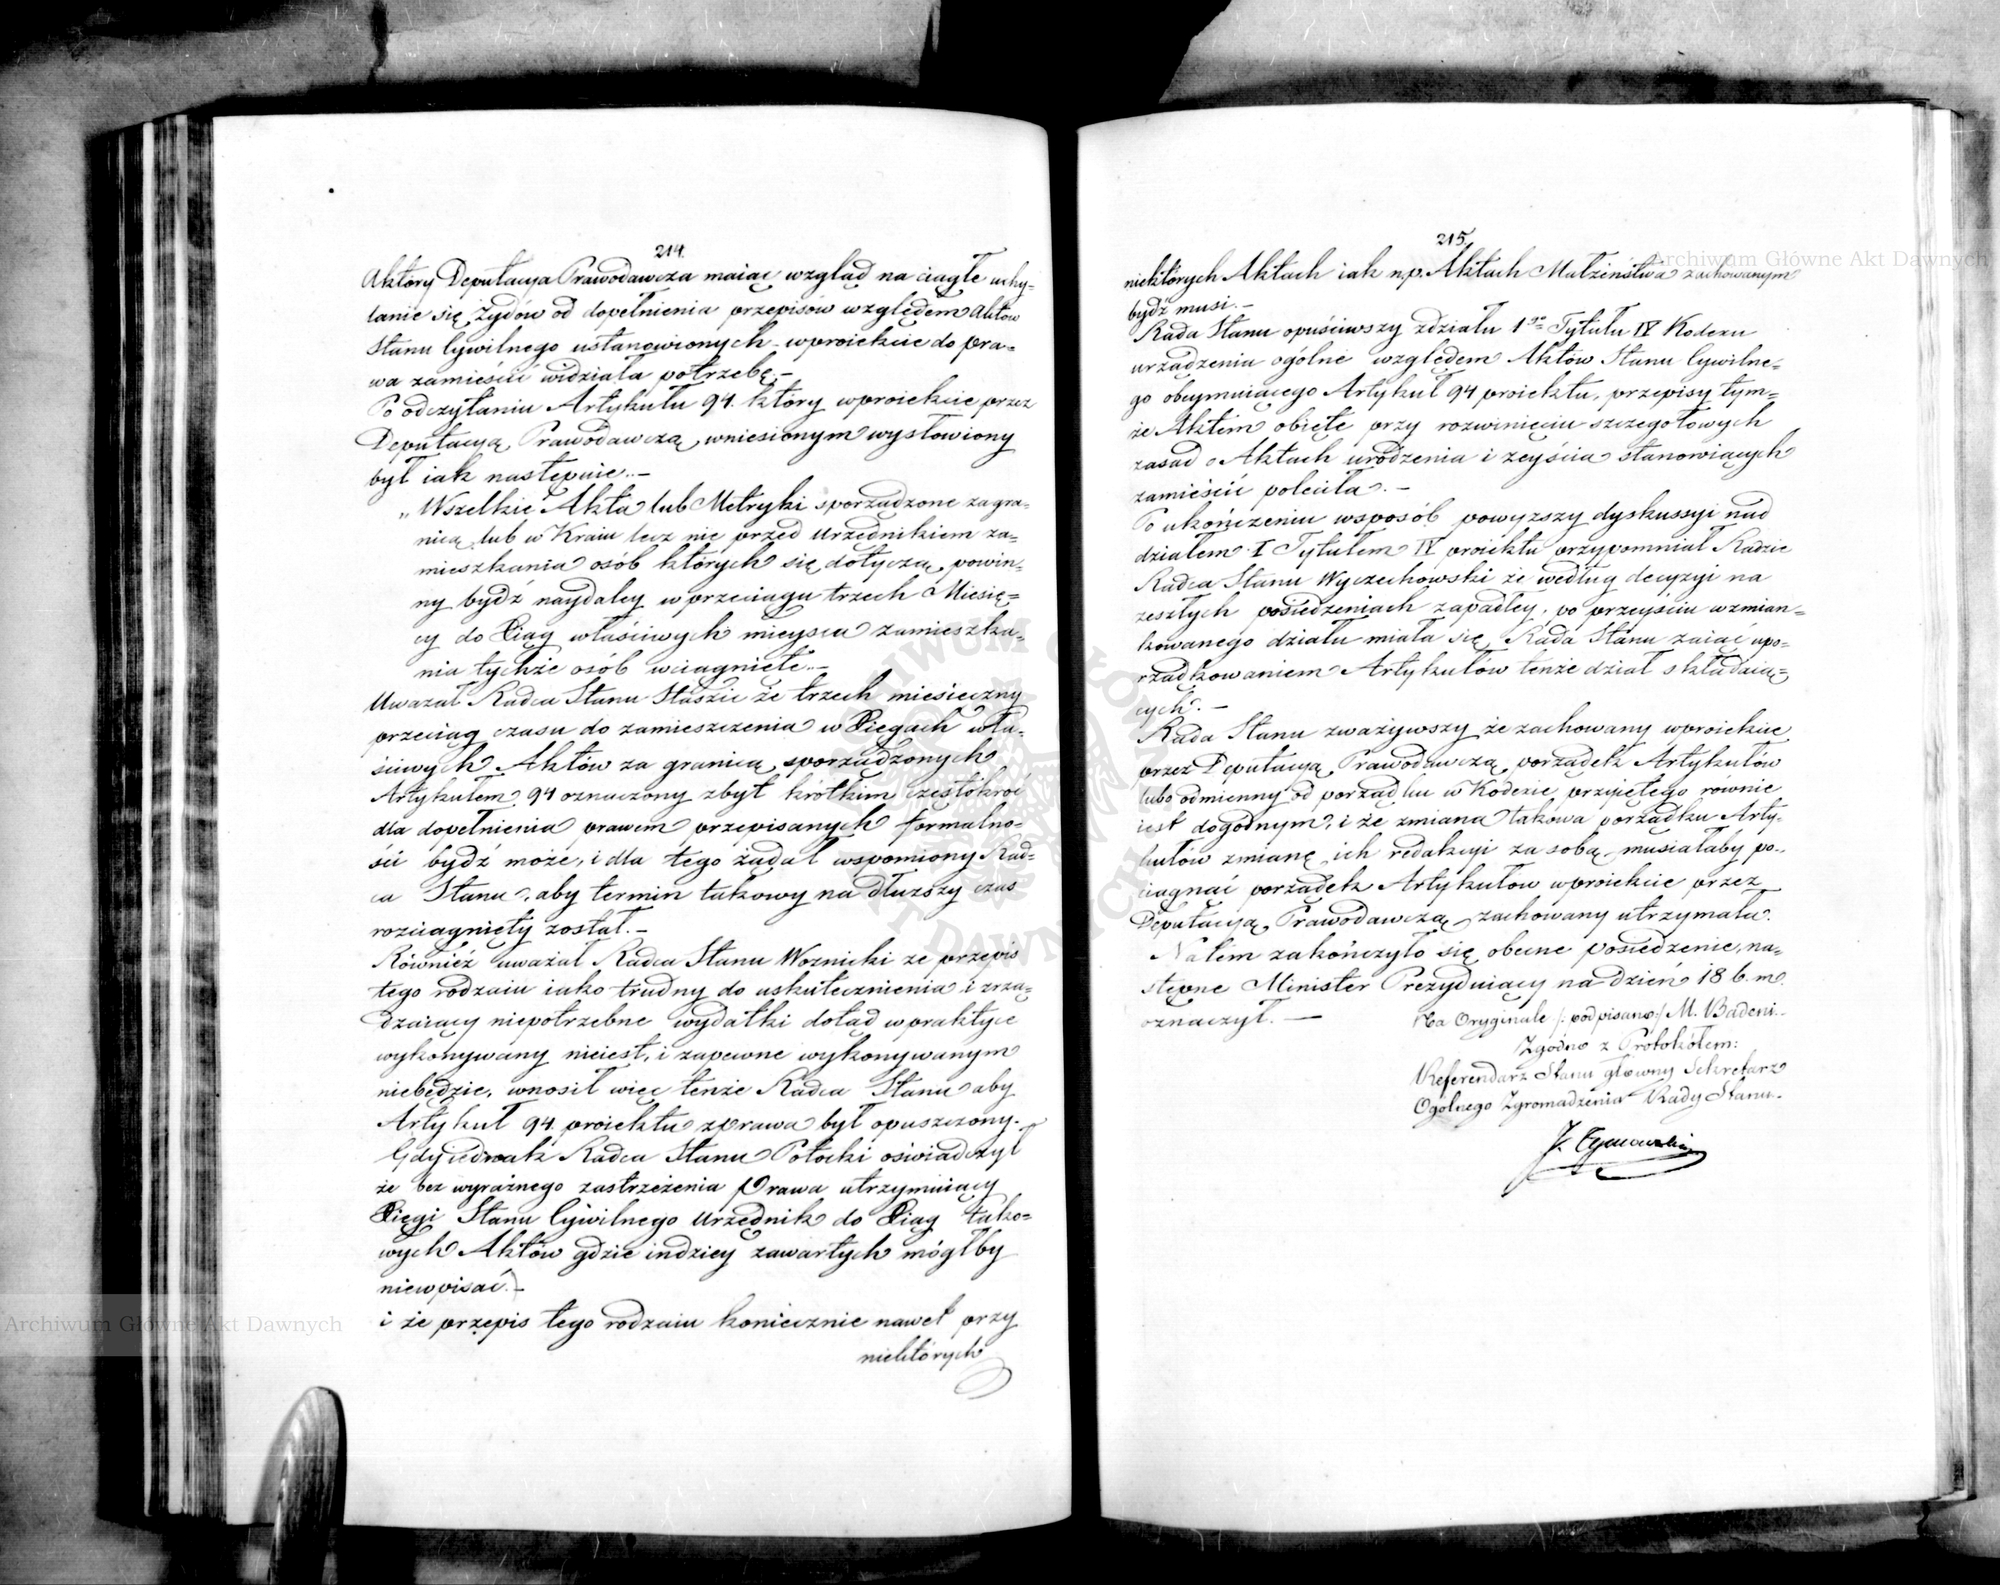 214.
aktory Deputacya Prawodawcza maiąc wzgląd na ciągłe uchy-
lanie się Żydów od dopełnienia przepisów względem Aktów
Stanu Cywilnego ustanowionych w proiekcie do pra-
wa zamieścić widziała potrzebę.–
Po odczytaniu Artykułu 94. który w proiekcie przez
Deputacyą Prawodawczą wniesionym wysłowiony
był iak następuie.–
„Wszelkie Akta lub Metryki sporządzone za gra-
nicą lub w Kraiu lecz nie przed Urzędnikiem za-
mieszkania osób których się dotyczą, powin-
ny bydź naydaley w przeciągu trzech Miesię-
cy do Xiąg właściwych mieysca zamieszka-
nia tychże osób wciągnięte.–
Uważał Radca Stanu Staszic że trzech miesięczny
przeciąg czasu do zamieszczenia w Xięgach wła-
ściwych Aktów za granicą sporządzonych
Artykułem 94 oznaczony zbyt krótkim częstokroć
dla dopełnienia prawem przepisanych formalno-
ści bydź może, i dla tego żądał wspomiony Rad-
ca Stanu, aby termin takowy na dłuższy czas
rozciągnięty został.–
Również uważał Radca Stanu Woznicki że przepis
tego rodzaiu iako trudny do uskutecznienia i zrzą-
dzaiący niepotrzebne wydatki dotąd w praktyce
wykonywany nieiest, i zapewne wykonywanym
niebędzie, wnosił więc tenże Radca Stanu aby
Artykuł 94. proiektu z prawa był opuszczony.
Gdy iednak Radca Stanu Potocki oświadczył
że bez wyraźnego zastrzeżenia Prawa utrzymuiący
Xięgi Stanu Cywilnego Urzędnik do Xiąg tako-
wych Aktów gdzie indziey zawartych mógłby
niewpisać.–
i że przepis tego rodzaiu koniecznie nawet przy
niektórych
215.
niektórych Aktach iak n.p. Aktach Małżeństwa zachowanym
bydź musi.–
Rada Stanu opuściwszy z działu 1go Tytułu IV Kodexu
urządzenia ogólne względem Aktów Stanu Cywilne-
go obeymuiącego Artykuł 94 proiektu, przepisy tym-
że Aktem obięte przy rozwinięciu szczegołowych
zasad o Aktach urodzenia i zeyścia stanowiących
zamieścić poleciła.–
Po ukończeniu w sposób powyższy dyskussyi nad
działem I Tytułem IV proiektu przypomniał Radzie
Radca Stanu Wyczechowski że według decyzyi na
zeszłych posiedzeniach zapadłey, po przeyściu wzmian-
kowanego działu miała się Rada Stanu zaiąć upo-
rządkowaniem Artykułów tenże dział składaią-
cych.–
Rada Stanu zważywszy że zachowany w proiekcie
przez Deputacyą Prawodawczą porządek Artykułów
lubo odmienny od porządku w Kodexie przyiętego równie
iest dogodnym, i że zmiana takowa porządku Arty-
kułów zmianę ich redakcyi za sobą musiałaby po-
ciągnąć porządek Artykułów w proiekcie przez
Deputacyą Prawodawczą zachowany utrzymała.
Natem zakończyło się obecne posiedzenie, na-
stępne Minister Prezyduiący na dzień 18 b.m.
oznaczył.–
Na Oryginale /: podpisano:/ M. Badeni.–
Zgodno z Protokółem:
Referendarz Stanu główny Sekretarz
Ogólnego Zgromadzenia Rady Stanu.
J. Tymowski
Archiwum Główne Akt Dawnych
Archiwum Główne Akt Dawnych